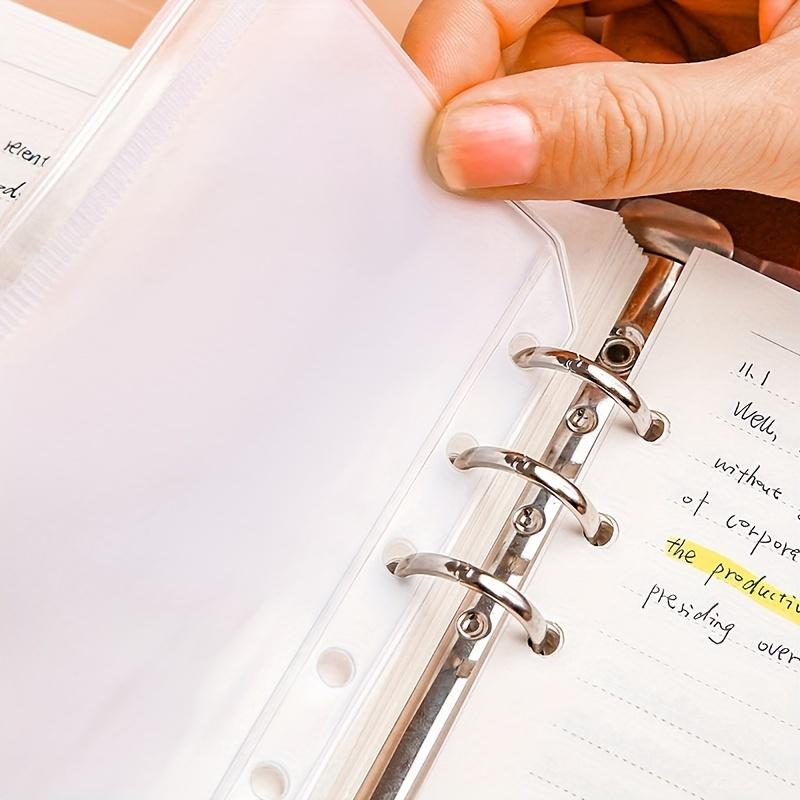 recent
11.1
Well,
without
of corpora
the productiv
presiding over